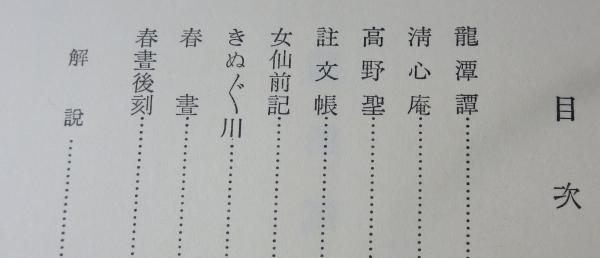 目次
龍潭譚
淸心庵
高野聖
註文帳
女仙前記
きぬ〴〵川
春晝
春晝後刻
解說